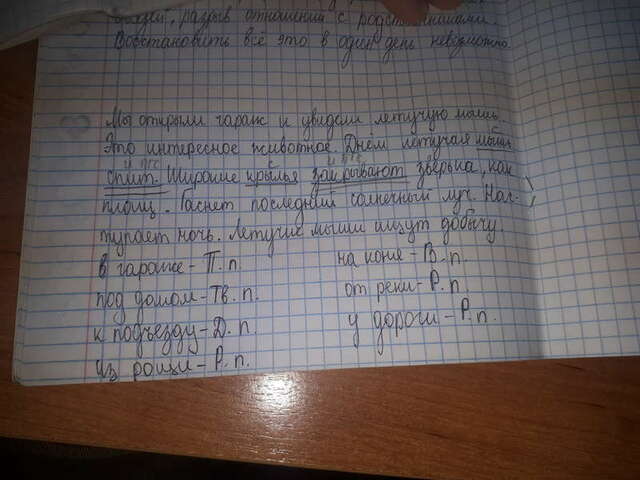 разрыв отношений с родственниками.
Восстановить всё это в один день невозможно.
Мы открыли гараж и увидели летучую мышь.
Это интересное животное. Днём летучая мышь
спит. Широкие крылья закрывают зверька, как
плащ. Гаснет последний солнечный луч. Нас-
тупает ночь. Летучие мыши ищут добычу.
в гараже - П. п.
на коне - В. п.
под домом - Тв. п.
от реки - Р. п.
к подъезду - Д. п.
у дороги - Р. п.
из рощи - Р. п.